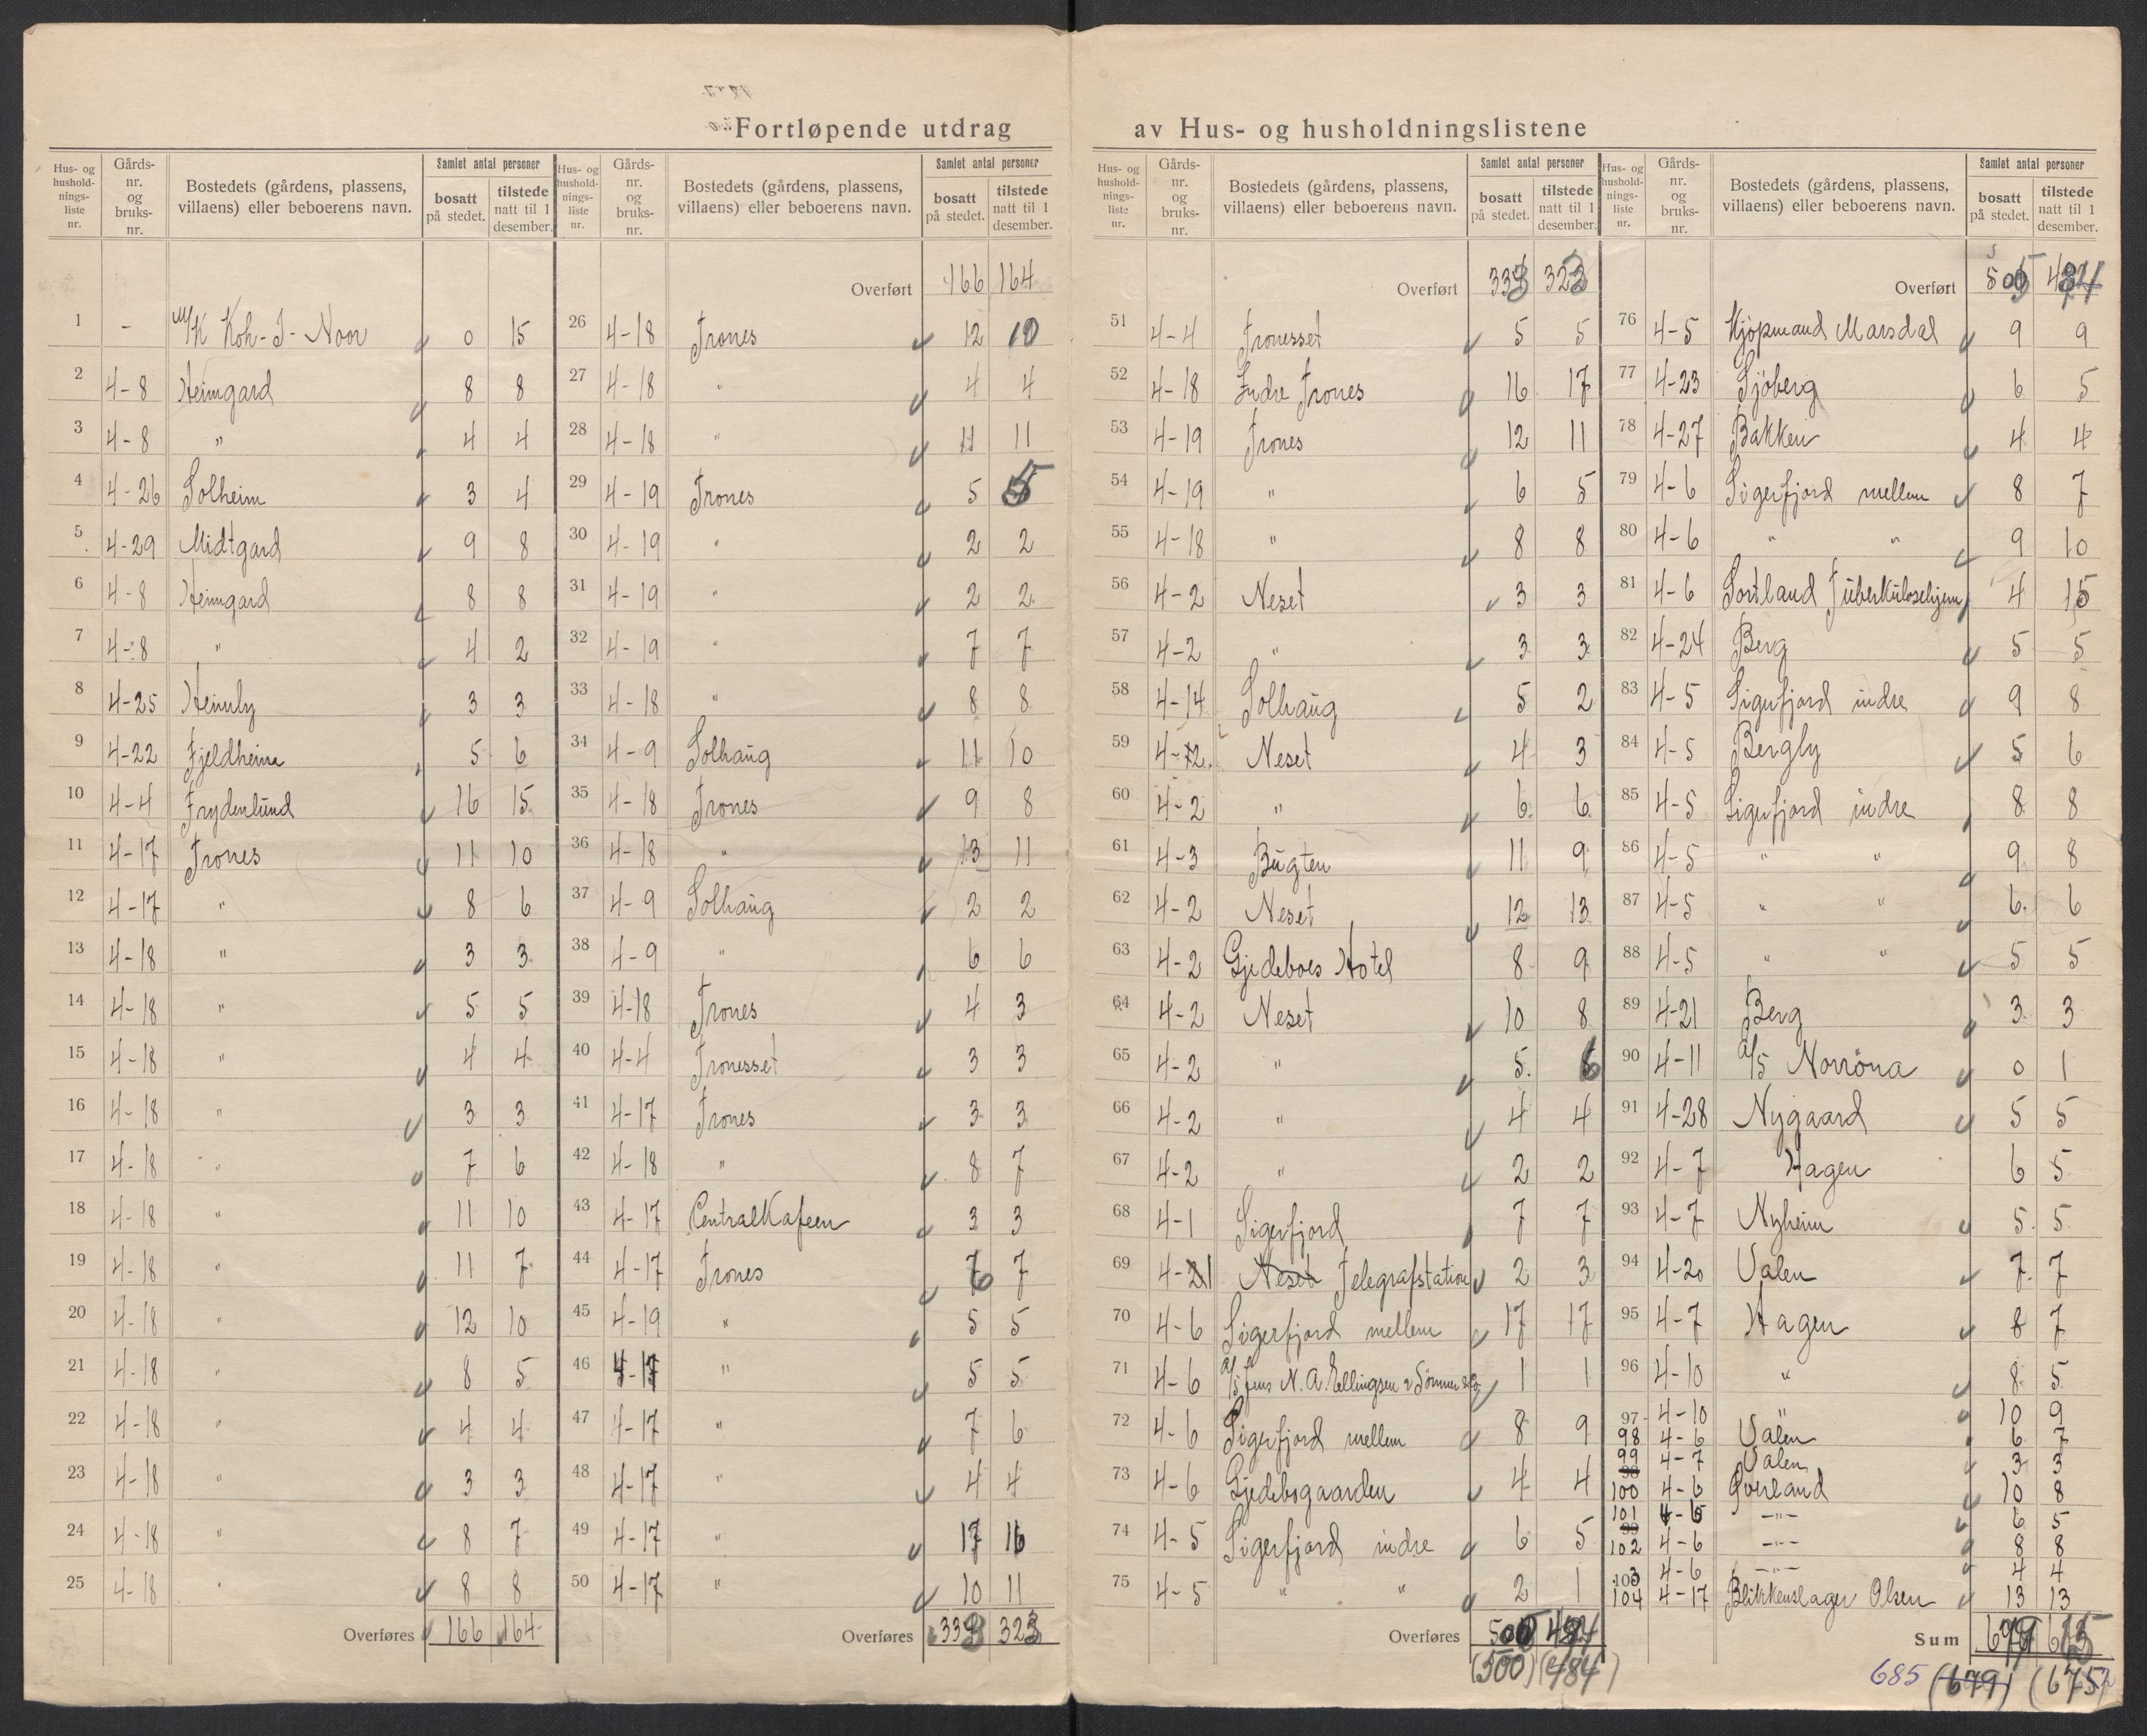 Fortløpende utdrag av Hus- og husholdningslistene
Hus- og husholdnings-liste nr. Gårds-nr. og bruks-nr. Bostedets (gårdens, plassens, villaens) eller beboerens navn. Samlet antal personer bosatt på stedet. tilstede natt til 1 desember.
1 - M/K Koh-I-Noor 0 15
2 4-8 Heimgard 8 8
3 4-8 " 4 4
4 4-26 Solheim 3 4
5 4-29 Midtgard 9 8
6 4-8 Heimgard 8 8
7 4-8 " 4 2
8 4-25 Heimly 3 3
9 4-22 Fjeldheim 5 6
10 4-4 Frydenlund 16 15
11 4-17 Trones 11 10
12 4-17 " 8 6
13 4-18 " 3 3
14 4-18 " 5 5
15 4-18 " 4 4
16 4-18 " 3 3
17 4-18 " 7 6
18 4-18 " 11 10
19 4-18 " 11 7
20 4-18 " 12 10
21 4-18 " 8 5
22 4-18 " 4 4
23 4-18 " 3 3
24 4-18 " 8 7
25 4-18 " 8 8
Overføres 166 164
Hus- og husholdnings-liste nr. Gårds-nr. og bruks-nr. Bostedets (gårdens, plassens, villaens) eller beboerens navn. Samlet antal personer bosatt på stedet. tilstede natt til 1 desember.
Overført 166 164
26 4-18 Trones 12 10
27 4-18 " 4 4
28 4-18 " 11 11
29 4-19 Trones 5 5
30 4-19 " 2 2
31 4-19 " 2 2
32 4-19 " 7 7
33 4-18 " 8 8
34 4-9 Solhaug 11 10
35 4-18 Trones 9 8
36 4-18 " 13 11
37 4-9 Solhaug 2 2
38 4-9 " 6 6
39 4-18 Trones 4 3
40 4-4 Tronesset 3 3
41 4-17 Trones 3 3
42 4-18 " 8 7
43 4-17 Centralkafeen 3 3
44 4-17 Trones 6 7
45 4-19 " 5 5
46 4-17 " 5 5
47 4-17 " 7 6
48 4-17 " 4 4
49 4-17 " 17 16
50 4-17 " 10 11
Overføres 333 323
Hus- og husholdnings-liste nr. Gårds-nr. og bruks-nr. Bostedets (gårdens, plassens, villaens) eller beboerens navn. Samlet antal personer bosatt på stedet. tilstede natt til 1 desember.
Overført 333 323
51 4-4 Tronesset 5 5
52 4-18 Indre Trones 16 17
53 4-19 Trones 12 11
54 4-19 " 6 5
55 4-18 " 8 8
56 4-2 Neset 3 3
57 4-2 " 3 3
58 4-14 Solhaug 5 2
59 4-12 Neset 4 3
60 4-2 " 6 6
61 4-3 Bugten 11 9
62 4-2 Neset 12 13
63 4-2 Gjedeboes Hotel 8 9
64 4-2 Neset 10 8
65 4-2 " 5 6
66 4-2 " 4 4
67 4-2 " 2 2
68 4-1 Sigerfjord 7 7
69 4-21 Neset Telegrafstation 2 3
70 4-6 Sigerfjord mellem 17 17
71 4-6 A/S Jens N. A. Ellingsen & Sønner 1 1
72 4-6 Sigerfjord mellem 8 9
73 4-6 Gjedebogaarden 4 4
74 4-5 Sigerfjord indre 6 5
75 4-5 " " 2 1
Overføres 500 484
(500) (484)
Hus- og husholdnings-liste nr. Gårds-nr. og bruks-nr. Bostedets (gårdens, plassens, villaens) eller beboerens navn. Samlet antal personer bosatt på stedet. tilstede natt til 1 desember.
Overført 505 484
76 4-5 Kjøpmand Marsdal 9 9
77 4-23 Sjøberg 6 5
78 4-27 Bakken 4 4
79 4-6 Sigerfjord mellem 8 7
80 4-6 " " 9 10
81 4-6 Sortland Tuberkulosehjem 4 15
82 4-24 Berg 5 5
83 4-5 Sigerfjord indre 9 8
84 4-5 Bergly 5 6
85 4-5 Sigerfjord indre 8 8
86 4-5 " " 9 8
87 4-5 " " 6 6
88 4-5 " " 5 5
89 4-21 Berg 3 3
90 4-11 A/S Norröna 0 1
91 4-28 Nygaard 5 5
92 4-7 Hagen 6 5
93 4-7 Nyheim 5 5
94 4-20 Valen 7 7
95 4-7 Hagen 8 7
96 4-10 " 8 5
97 4-10 " 10 9
98 4-6 Valen 6 7
99 4-7 Valen 3 3
100 4-6 Överland 10 8
101 4-6 -"- 6 5
102 4-6 -"- 8 8
103 4-6 -"- 4 4
104 4-17 Blikkenslager Olsen 13 13
Sum 679 675
685 (679) (675)